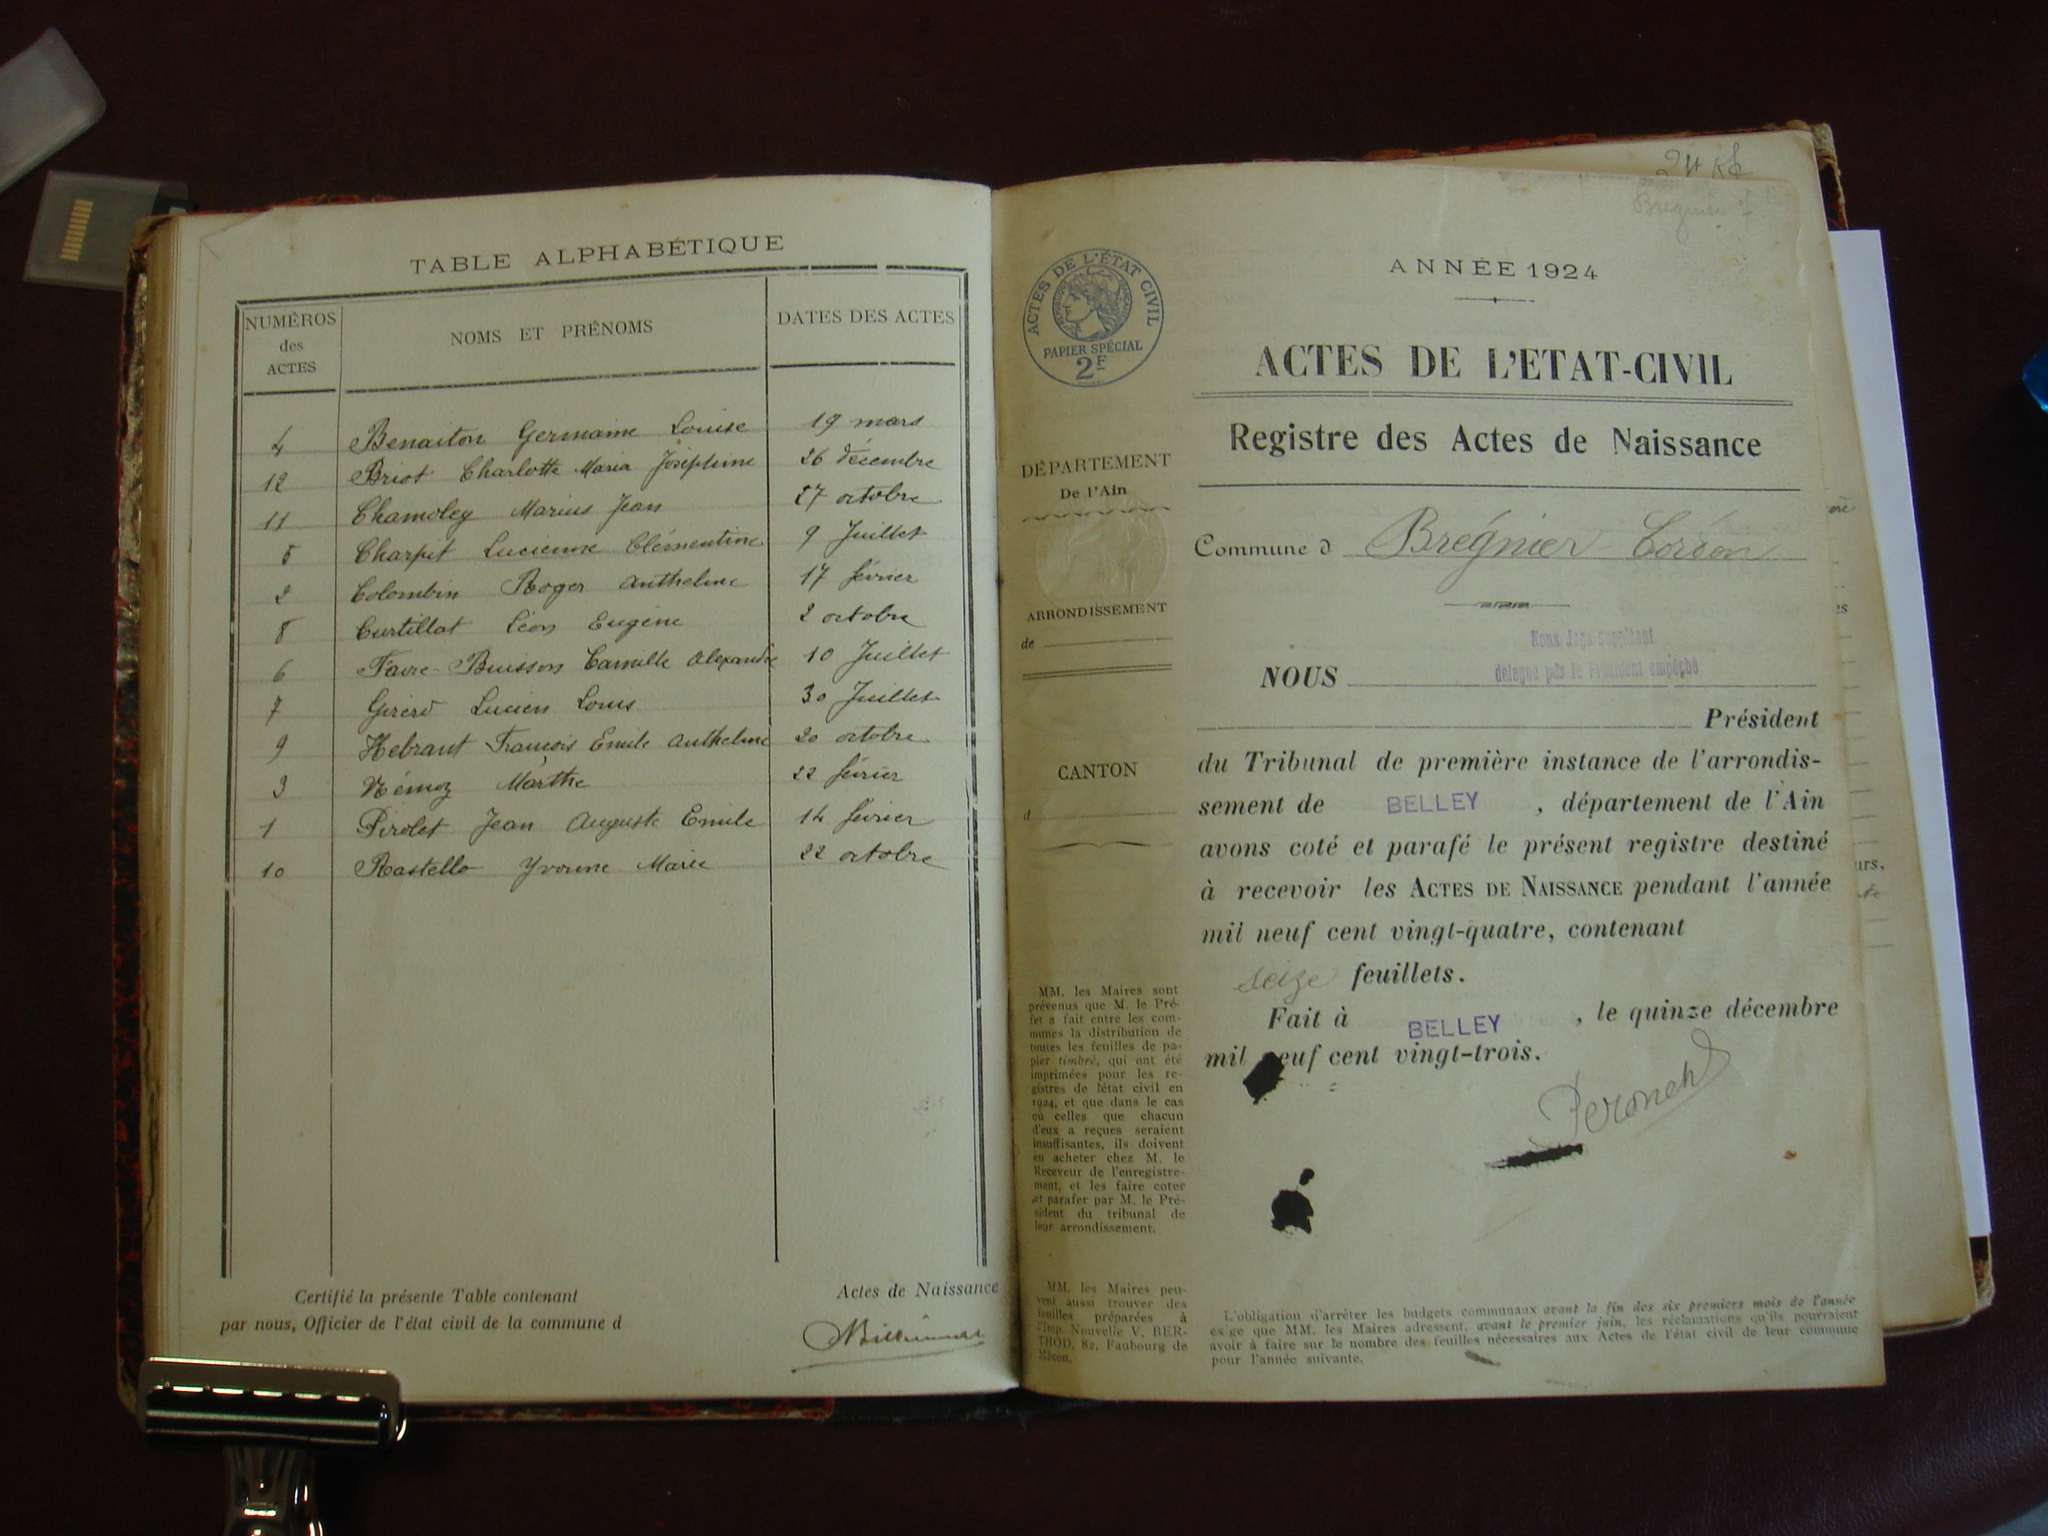 TABLE ALPHABÉTIQUE
NUMÉROS des ACTES
NOMS ET PRÉNOMS
DATES DES ACTES
4 Benaiton Germaine Louise 19 mars
12 Briot Charlotte Maria Joséphine 26 décembre
11 Chamoley Marius Jean 27 octobre
5 Charpit Lucienne Clémentine 9 Juillet
2 Colombin Roger Anthelme 17 février
8 Curtillat Léon Eugène 2 octobre
6 Favre-Buisson Camille Alexandre 10 Juillet
7 Girerd Lucien Louis 30 Juillet
9 Hebrant François Emile Anthelme 20 octobre
3 Némoz Marthe 22 février
1 Pirolet Jean Auguste Emile 14 février
10 Rastello Yvonne Marie 22 octobre
Certifié la présente Table contenant Actes de Naissance
par nous, Officier de l'état civil de la commune d
Brégnier
ACTES DE L'ÉTAT CIVIL
PAPIER SPÉCIAL
2F
DÉPARTEMENT
De l'Ain
ARRONDISSEMENT
de
CANTON
d
MM. les Maires sont
prévenus que M. le Pré-
fet a fait entre les com-
munes la distribution de
toutes les feuilles de pa-
pier timbré, qui ont été
imprimées pour les re-
gistres de létat civil en
1924, et que dans le cas
où celles que chacun
d'eux a reçues seraient
insuffisantes, ils doivent
en acheter chez M. le
Receveur de l'enregistre-
ment, et les faire coter
et parafer par M. le Pré-
sident du tribunal de
leur arrondissement.
MM. les Maires peu-
vent aussi trouver des
feuilles préparées à
l'Imp. Nouvelle V. BER-
THOD, 82, Faubourg de
Mâcon.
ANNÉE 1924
ACTES DE L'ETAT-CIVIL
Registre des Actes de Naissance
Commune d Brégnier-Cordon
Nous Juge suppléant
NOUS délégué par le Président empêché
Président
du Tribunal de première instance de l'arrondis-
sement de BELLEY, département de l'Ain
avons coté et parafé le présent registre destiné
à recevoir les ACTES DE NAISSANCE pendant l'année
mil neuf cent vingt-quatre, contenant
seize feuillets.
Fait à BELLEY, le quinze décembre
mil neuf cent vingt-trois.
L'obligation d'arrêter les budgets communaux avant la fin des six premiers mois de l'année
exige que MM. les Maires adressent, avant le premier juin, les réclamations qu'ils pourraient
avoir à faire sur le nombre des feuilles nécessaires aux Actes de l'état civil de leur commune
pour l'année suivante.